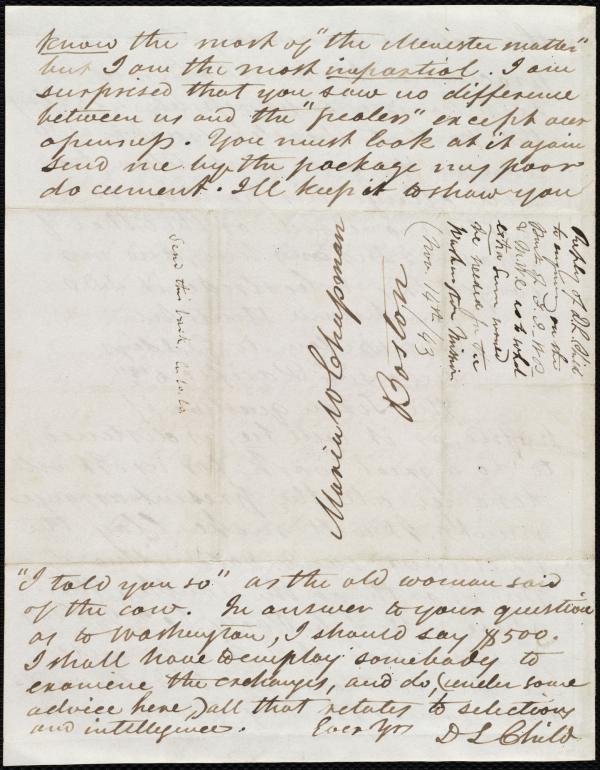 know the most of "the Meinester matter"
but I am the most impartial. I am
surprised that you saw no difference
between us and the "Pealers" except our
openness. You must look at it again
Send me by the package my poor
document. I'll keep it to show you
Maria W Chapman
Boston
Reply of D. L. Child
to enquiry on the
extra sum
be needed for the
Washington Mission
(Nov. 14th /43
Send this back
"I told you so" as the old woman said
of the cow. In answer to your question
as to Washington, I should say $500.
I shall have to employ somebody to
examine the exchanges, and do, (under some
advice here,) all that relates to selections
and intelligence. Ever Yrs
D L Child